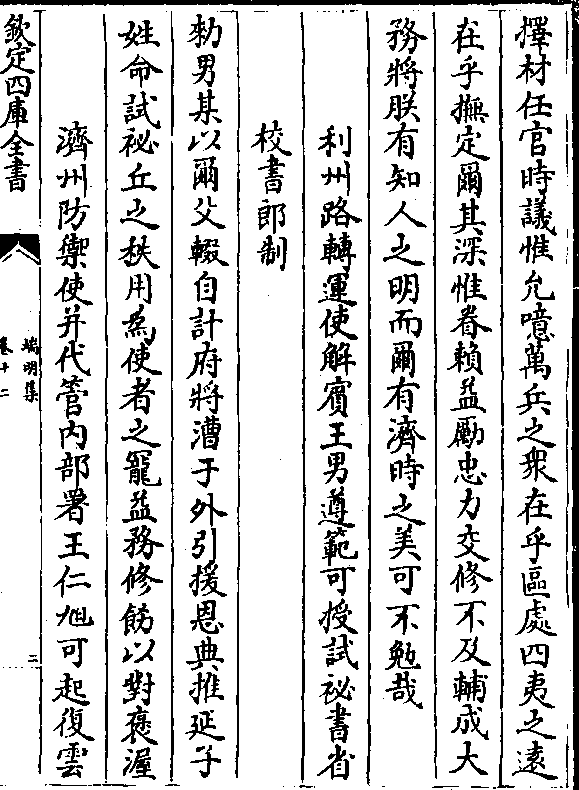 擇材任官時議惟允噫萬兵之衆在乎區處四夷之遠
在乎撫定爾其深惟眷賴益勵忠力交修不及輔成大
務將朕有知人之明而爾有濟時之美可不勉哉
利州路轉運使解賓王男遵範可授試祕書省
校書郎制
勑男某以爾父輟自計府將漕于外引援恩典推延子
姓命試祕丘之秩用為使者之寵益務修飭以對褒渥
濟州防禦使并代管内部署王仁旭可起復雲
欽定四庫全書
端明集
卷十二
二